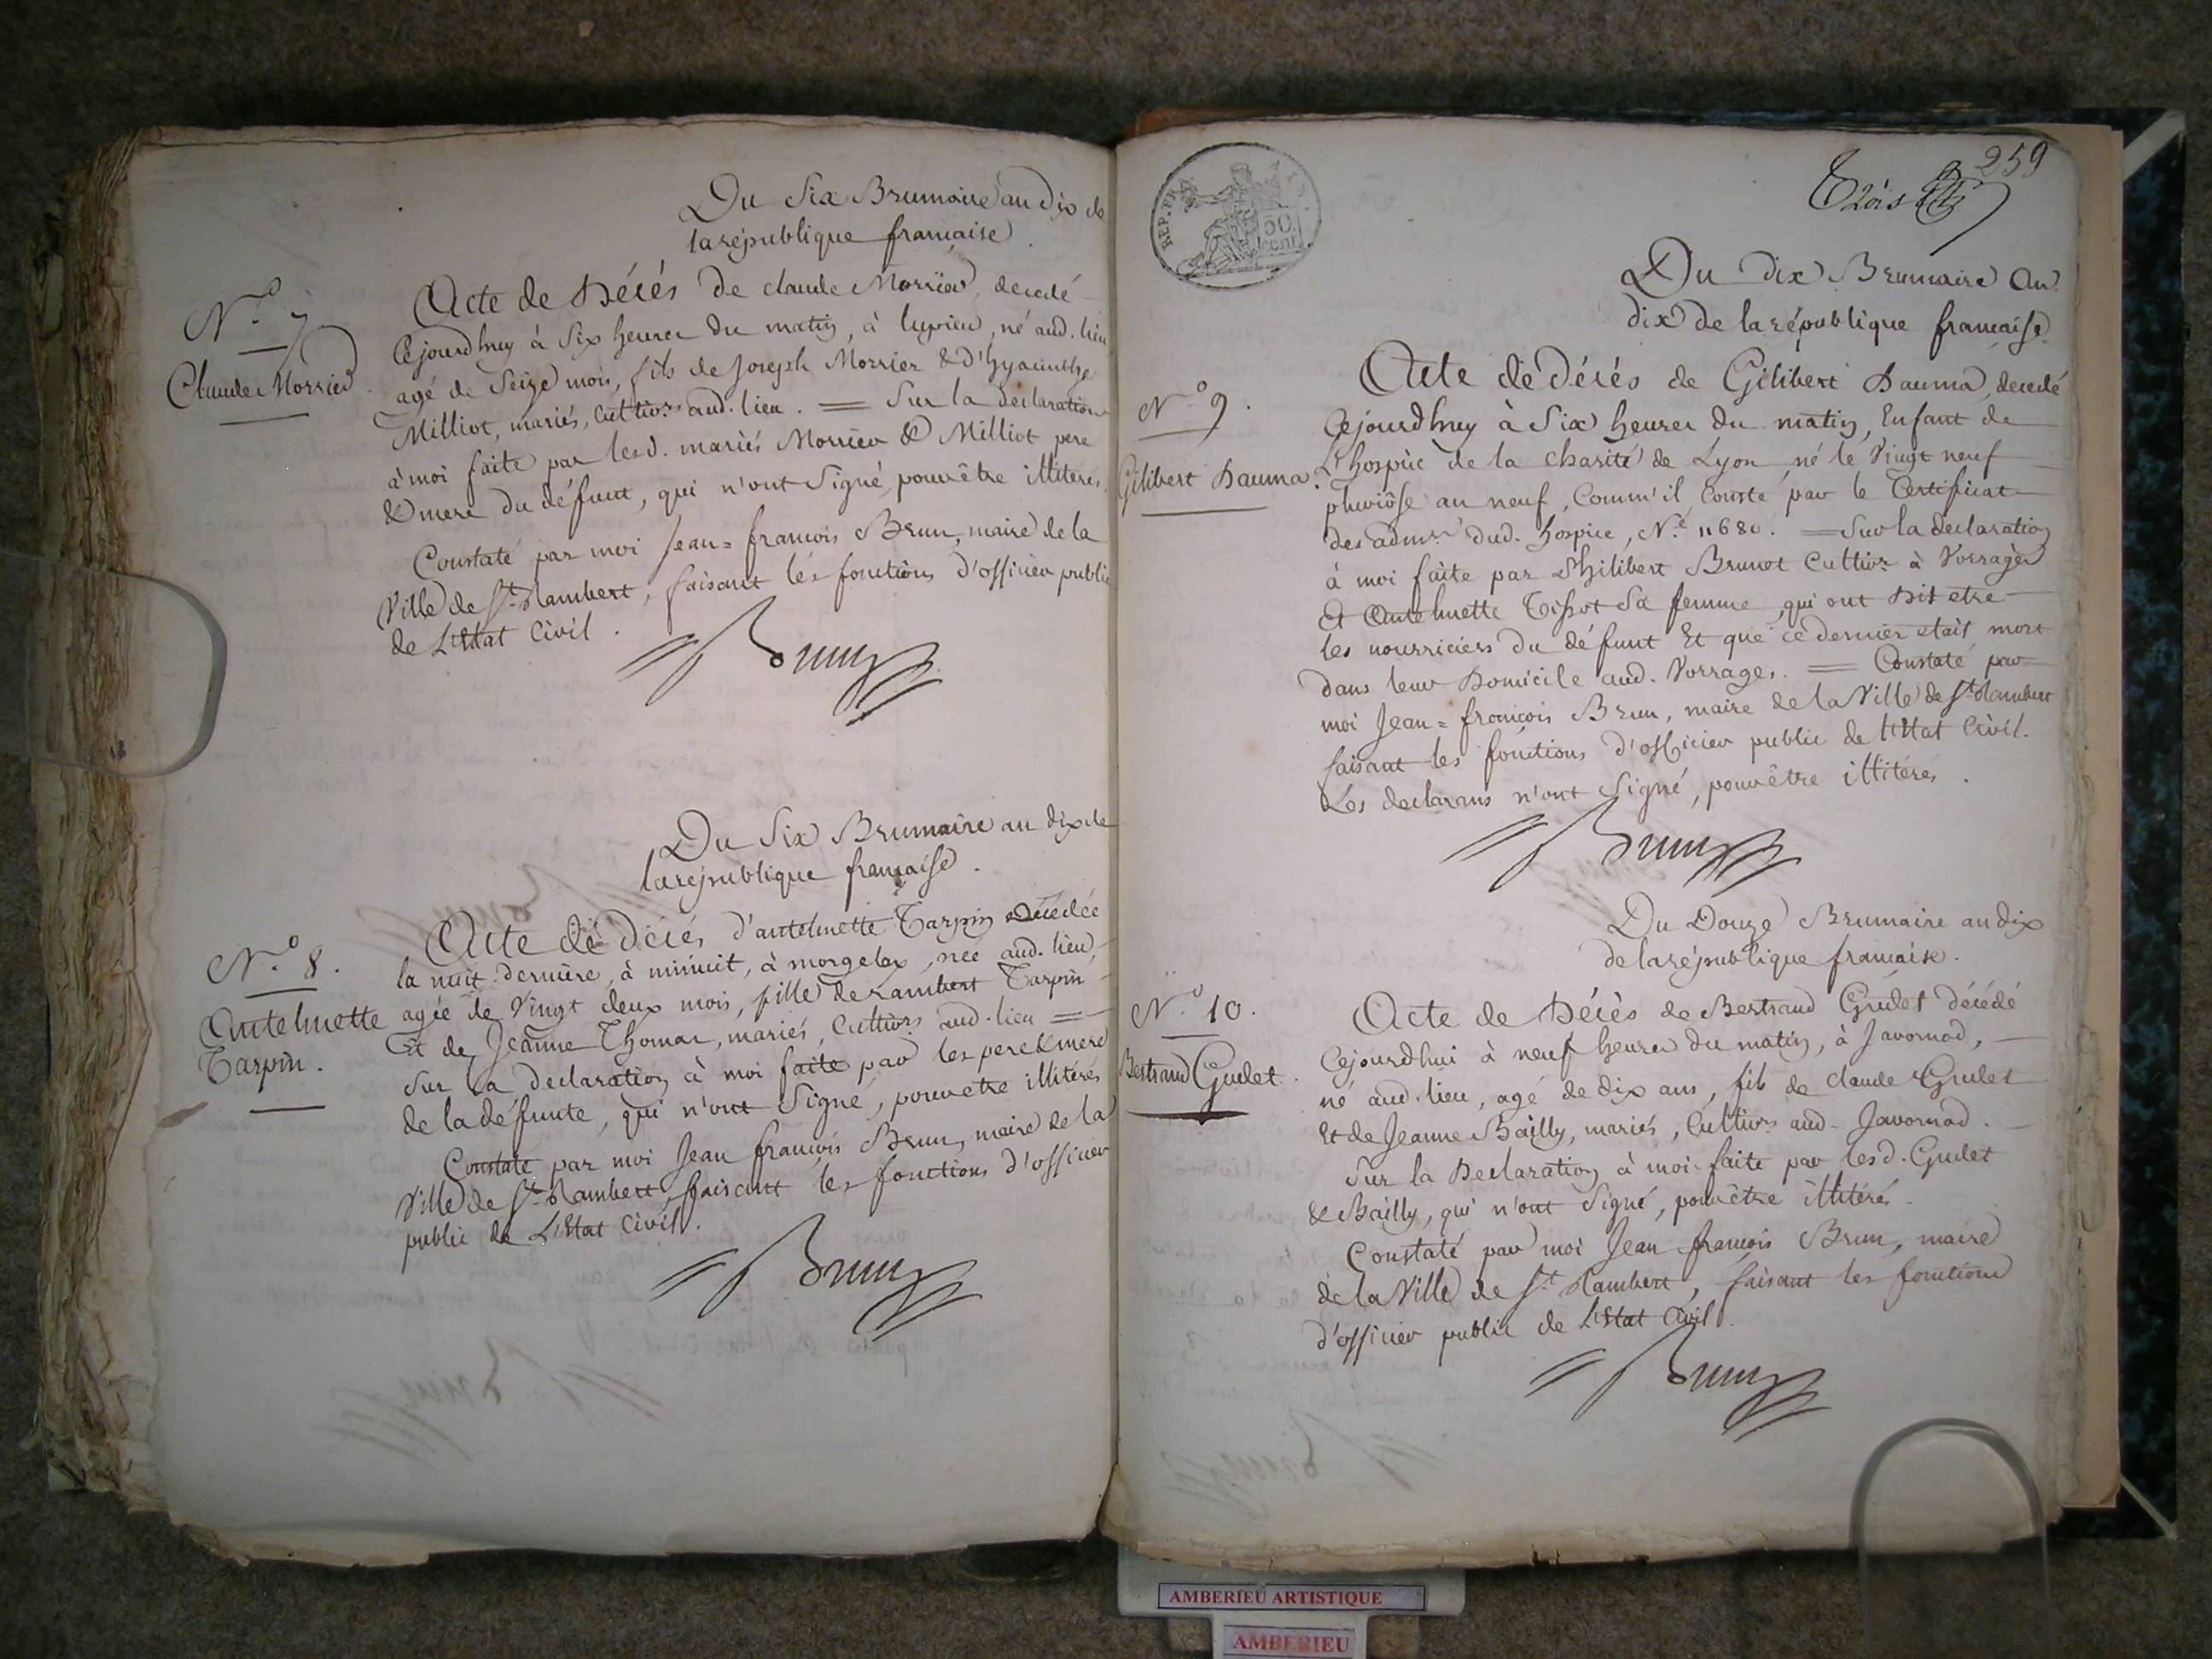 Du Six Brumaire an dix de
la république française.
N.o 7
Claude Morrier
Acte de Décés de claude Morrier, decedé
Cejourdhuy à Six heures du matin, à luyrieu, né aud. lieu
agé de Seize mois, fils de Joseph Morrier & d'hyacinthe
Milliot, mariés, Cultivrs aud. lieu. = Sur la declaration
à moi faite par lesd. mariés Morrier & Milliot pere
& mere du défunt, qui n'ont Signé, pour être illiterés.
Constaté par moi Jean=françois Brun, maire de la
Ville de St. Rambert, faisant les fonctions d'officier public
de L'Etat Civil.
Brun
Du Six Brumaire an dix de
la république française.
N.o 8.
Antelmette
Tarpin.
Acte de Décés d'antelmette Tarpin decédée
la nuit derniere, à minuit, à morgelax, née aud. lieu,
agée de Vingt deux mois, fille de rambert Tarpin
Et de Jeanne Thomas, mariés, Cultivrs aud. lieu =
Sur la declaration à moi faite par les pere & mere
de la défunte, qui n'ont Signé, pour etre illitérés
Constaté par moi Jean françois Brun, maire de la
Ville de St. Rambert, faisant les fonctions d'officier
public de L'Etat Civil.
Brun
REP. FRA.
50
cent.
259
Trois
Du dix Brumaire an
dix de la république française
N.o 9.
Gilibert Dauma.
Acte de Décés de Gilibert Dauma, decedé
Cejourdhuy à Six heures du matin, Enfant de
L'hospice de la charité de Lyon né le Vingt neuf
pluviôse an neuf, Comm'il Conste par le Certificat
des admrs dud. hospice, N.o 11680. = Sur la declaration
à moi faite par Philibert Brunet Cultivr à Vorrages
Et Antelmette Tissot Sa femme, qui ont Dit etre
les nourriciers du défunt Et que ce dernier etait mort
dans leur Domicile aud. Vorrages. = Constaté par
moi Jean=françois Brun, maire de la Ville de St. Rambert
faisant les fonctions d'officier public de l'Etat Civil.
Les declarans n'ont Signé, pour être illitérés.
Brun
Du Douze Brumaire an dix
de la république française.
N.o 10.
Bertrand Grulet.
Acte de Décès de Bertrand Grulet décédé
Cejourdhui à neuf heures du matin, à Javornod,
né aud. lieu, agé de dix ans, fils de Claude Grulet
Et de Jeanne Bailly, mariés, Cultivrs aud. Javornod.
Sur la Declaration à moi faite par lesd. Grulet
& Bailly, qui n'ont Signé, pour être illitérés.
Constaté par moi Jean françois Brun, maire
de la Ville de St. Rambert, faisant les fonctions
d'officier public de L'Etat Civil.
Brun
AMBERIEU ARTISTIQUE
AMBERIEU